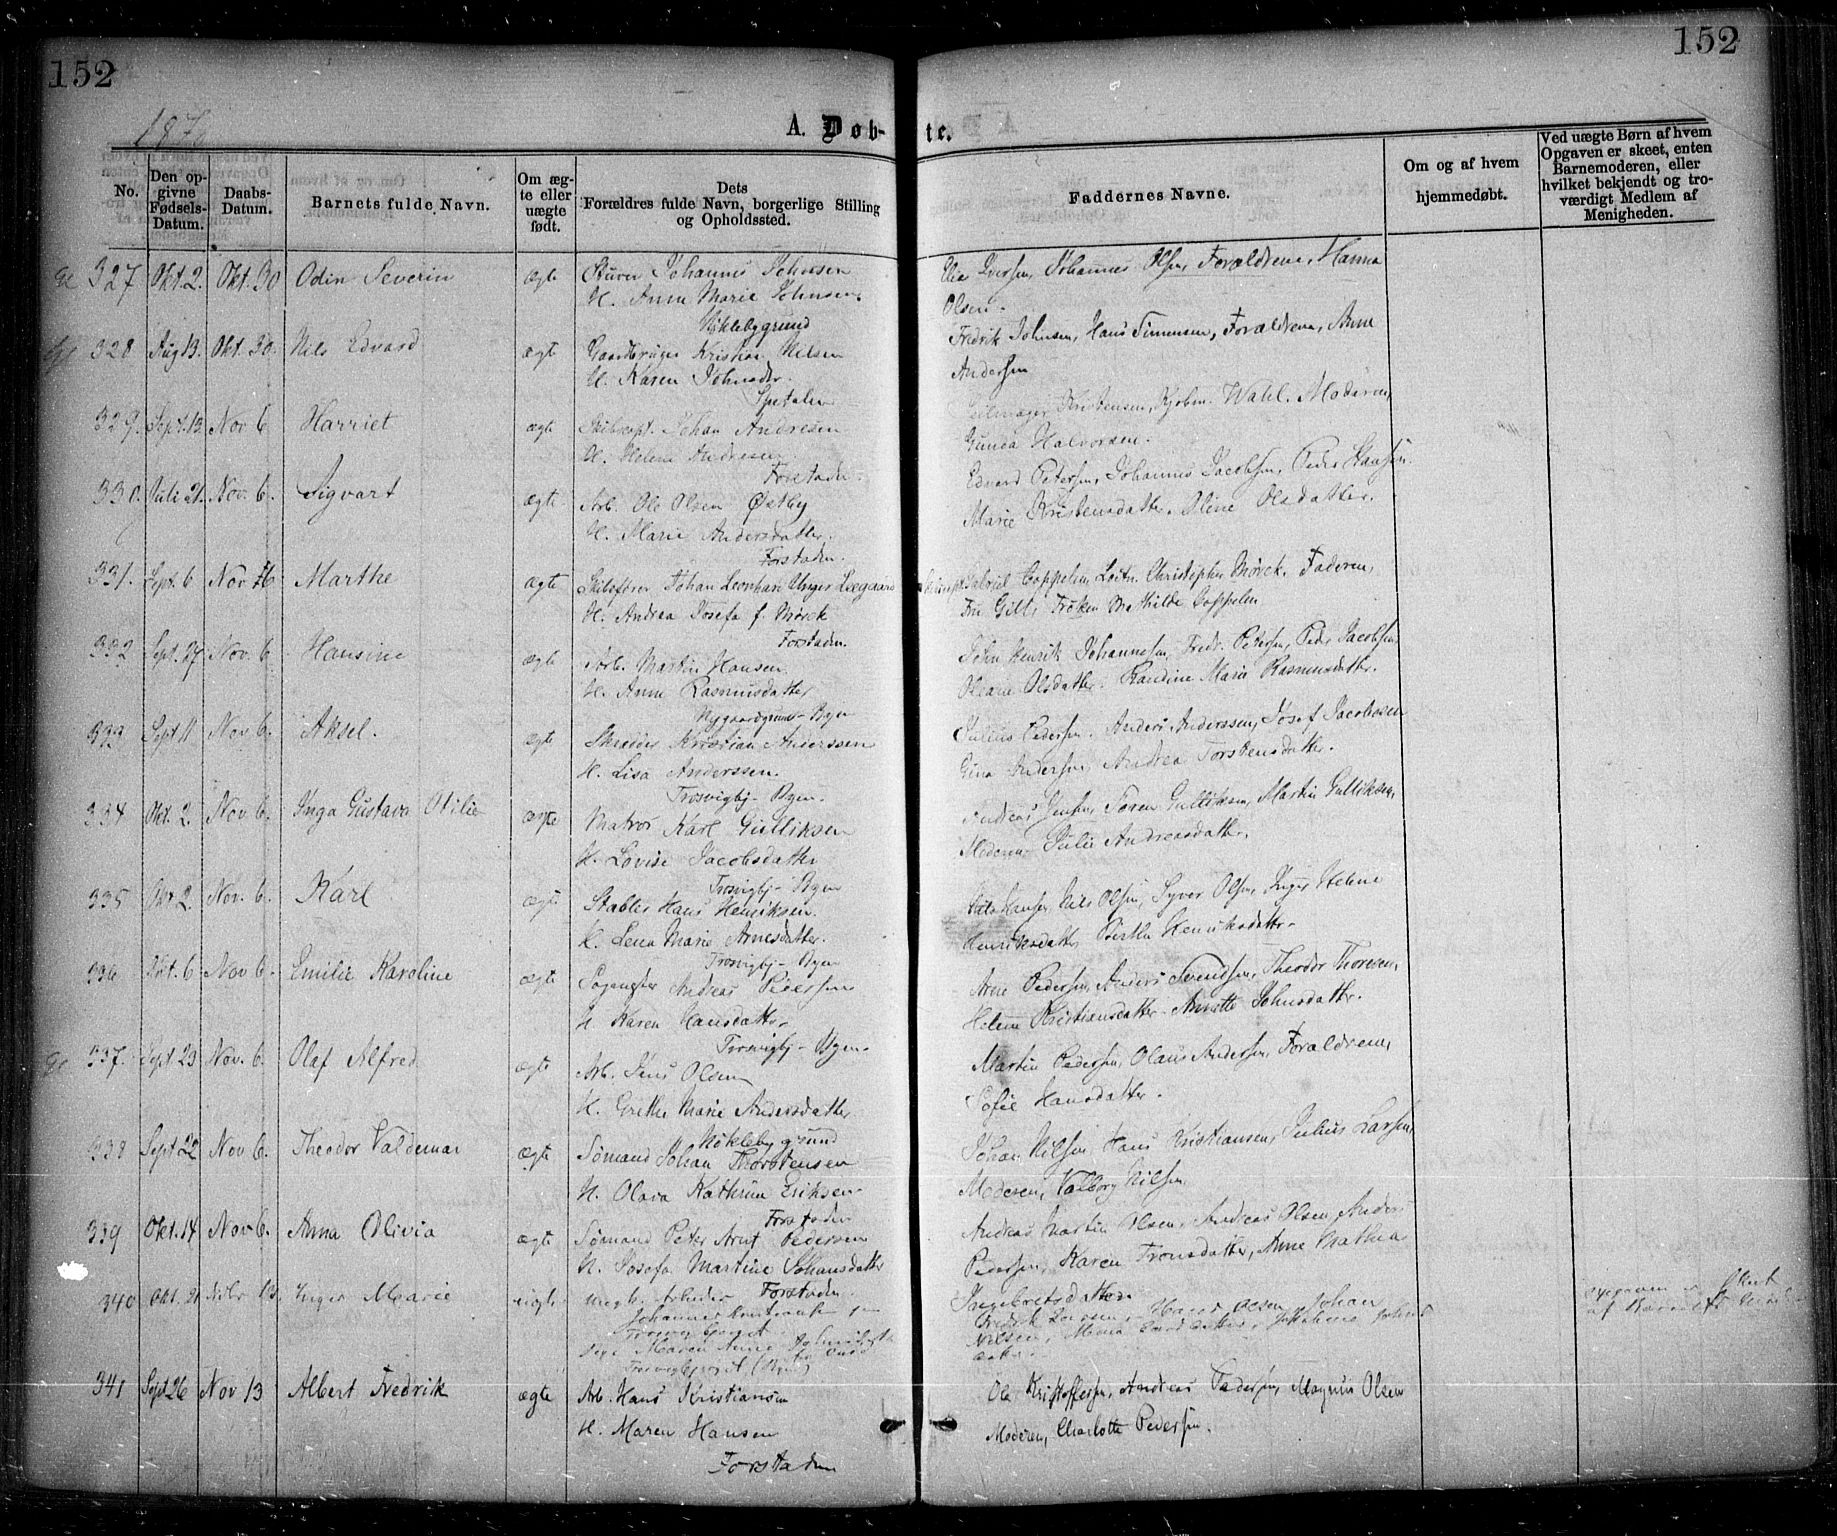 152
152
187
A. Døb-
te.
No.
Den op-
givne
Fødsels-
Datum.
Daabs-
Datum.
Barnets fulde Navn.
Om æg-
te eller
uægte
født.
Dets
Forældres fulde Navn, borgerlige Stilling
og Opholdssted.
Faddernes Navne.
Om og af hvem
hjemmedøbt.
Ved uægte Børn af hvem
Opgaven er skeet, enten
Barnemoderen, eller
hvilket bekjendt og tro-
værdigt Medlem af
Menigheden.
327 Okt. 2. Okt. 30 Odin Severin ægte Johannes Johnsen Iversen, Johannes Olsen, Forældrene, Hanna
H. Anne Marie Johnsen. Olsen.
Nøklebygrund
328 Aug 13. Okt. 30. Nils Edvard ægte Gaardbruger Kristian Nilsen Fredrik Johnsen, Hans Simensen, Forældrene, Anne
H. Karen Johnsdtr. Andersen
Spetalen
329. Sept. 13. Nov 6 Harriet ægte Skibscapt. Johan Andresen Kristensen, Kjøbm. Wahl. Moderen,
H. Helene Andresen Halvorsen.
Forstaden.
330. Juli 21. Nov. 6. Sigvart ægte Arb. Ole Olsen Østby Edvard Petersen, Johannes Jacobsen, Peder Hansen.
H. Marie Andersdatter. Marie Kristensdatter. Oline Olsdatter.
Forstaden.
331. Sept. 6 Nov 6 Marthe ægte Skibsfører Johan Leonhard Unger Gabriel Coppelen, Christopher Mørck, Faderen,
H. Andrea Josefa f. Mørck Fru Frøken Mathilde Coppelen
Forstaden.
332 Sept. 27 Nov. 6 Hansine ægte Arb. Martin Hansen John Henrik Johannesen, Fredr. Petersen, Peder Jacobsen
H. Anne Rasmusdatter Olsdatter. Randine Marie Rasmusdatter.
Nygaardsgrund - Byen
333 Sept 11 Nov. 6. Aksel. ægte Skredder Kristian Anderssen Julius Pedersen. Anders Anderssen, Josef Jacobsen
H. Lisa Anderssen. Gina Andersen, Andrea Torstensdatter.
Trosvigbj - Byen.
334 Okt. 2. Nov. 6. Inga Gustava Otilie ægte Matros Karl Gulliksen Andreas Jensen, Søren Gulliksen, Martin Gulliksen,
H. Lovise Jacobsdatter Moderen Julie Andreasdatter.
Trosvigbj - Byen
335 Okt 2. Nov. 6. Karl ægte Stabler Hans Henriksen. Hansen, Nils Olsen, Syver Olsen, Inger Helene
H. Lena Marie Arnesdatter. Henriksdatter Birthe Henriksdatter.
Trosvigbj - Byen
336 Okt. 6 Nov 6. Emilie Karoline ægte Andreas Pedersen Arne Pedersen, Anders Svendsen, Theodor Thoresen,
H Karen Hansdatter Helene Kristiansdatter. Annette Johnsdatter.
Trosvigbj - Byen.
337. Sept. 23 Nov. 6. Olaf Alfred ægte Arb. Jens Olsen Martin Pedersen, Olaus Andersen, Forældrene,
H. Grethe Marie Andersdatter. Sofie Hansdatter.
Nøklebygrund
338 Sept. 22 Nov 6. Theodor Valdemar ægte Sømand Johan Thorstensen Johan Nilsen, Hans Kristiansen, Julius Larsen,
H. Olava Kathrine Eriksen. Moderen, Valborg Nilsen
Forstaden
339 Okt. 14 Nov 6. Anna Olivia ægte Sømand Peter Arnt Pedersen Andreas Martin Olsen, Andreas Olsen, Anders
H. Josefa Martine Johansdatter Pedersen, Karen Tronsdatter, Anne Mathea
Forstaden Ingebretsdatter
340 Okt. 21 Nov. 13. Inger Marie uægte ungk. Arbeider Fredrik Hans Olsen, Johan Opgaven er skeet
Johannes Nilsen, Maria af
Maren Anne
341 Sept 26 Nov 13 Albert Fredrik ægte Arb. Hans Kristiansen Ole Kristoffersen, Andreas Pedersen, Magnus Olsen
H. Maren Hansen Moderen, Charlotte Pedersen.
Forstaden